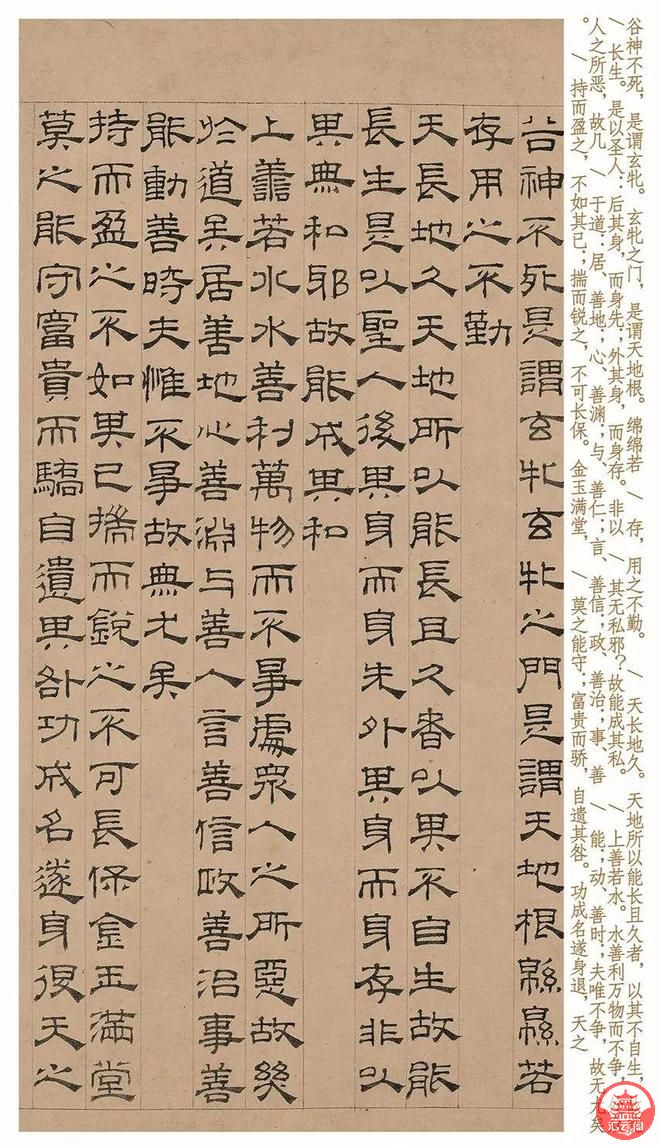 谷神不死，是谓玄牝。玄牝之门，是谓天地根。绵绵若\存，用之不勤。\天长地久。天地所以能长且久者，以其不自生，
\长生。是以圣人：后其身，而身先；外其身，而身存。非以\其无私邪？故能成其私。\上善若水。水善利万物而不争，
人之所恶，故几\于道：居、善地；心、善渊；与、善仁；言、善信；政、善治；事、善\能；动、善时；夫唯不争，故无尤矣
。\持而盈之，不如其已；揣而锐之，不可长保。金玉满堂，\莫之能守；富贵而骄，自遗其咎。功成名遂身退，天之
谷神不死是謂玄牝玄牝之門是謂天地根緜緜若
存用之不勤
天長地久天地所以能長且久者以其不自生故能
長生是以聖人後其身而身先外其身而身存非以
其無私邪故能成其私
上善若水水善利萬物而不爭處眾人之所惡故幾
於道矣居善地心善淵与善人言善信政善治事善
能動善時夫惟不爭故無尤矣
持而盈之不如其已揣而銳之不可長保金玉滿堂
莫之能守富貴而驕自遺其咎功成名遂身退天之
汇云阁